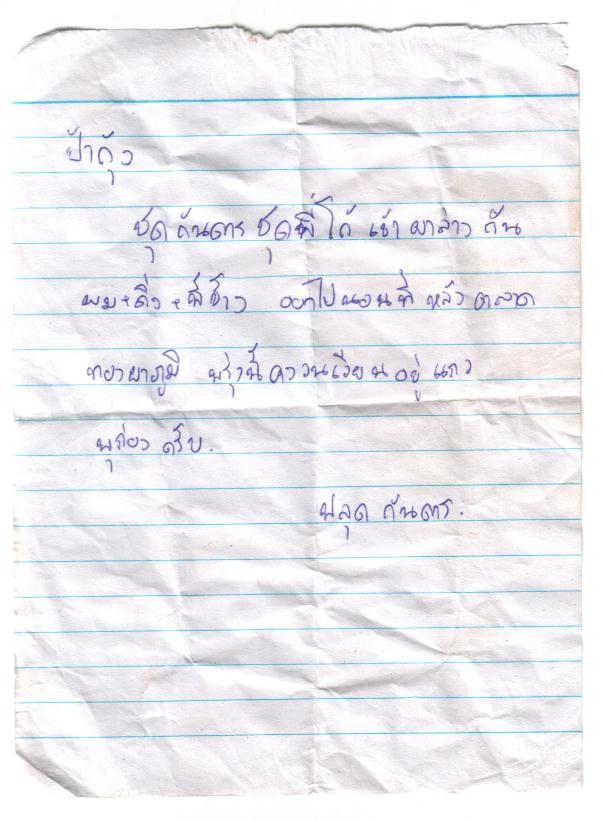 ป้ากุ้ง
ชุด กันตาร ชุดพี่โก้ เข้า ผาลาว กัน
ผม + ติ่ง + พี่ช้าง ออกไปนอนที่ หลัง ตลาด
ทองผาภูมิ พรุ่งนี้ คววนเวียนอยู่ แถว
พุก่อง ครับ.
ปลุด กันตาร.